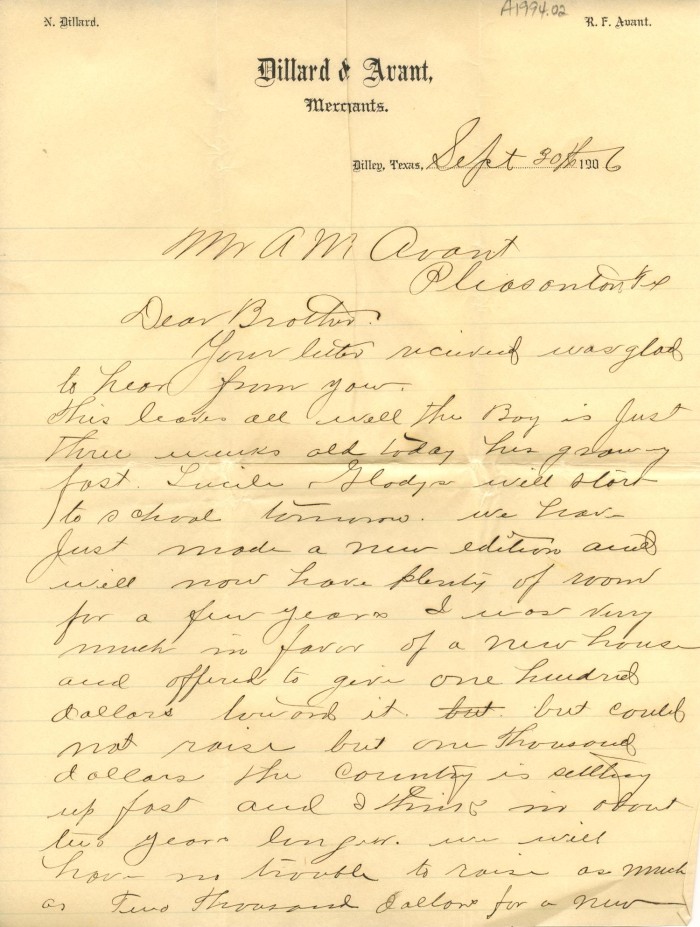 A1994.02
N. Dillard. R. F. Avant.
Dillard & Avant,
Merchants.
Dilley, Texas, Sept 30th 1906
Mr A M Avant
Pleasanton Tx
Dear Brother:
Your letter recieved was glad
to hear from you.
This leaves all well the Boy is Just
three weeks old today his growing
fast. Lucile Gladys will start
to school tomorrow. we have
Just made a new edition and
will now have plenty of room
for a few years I was very
much in favor of a new house
and offered to give one hundred
dollars toward it. but but could
not raise but one Thousand
dollars the country is settling
up fast and I think in about
two years longer. we will
have no trouble to raise as much
as Two Thousand dollars for a new